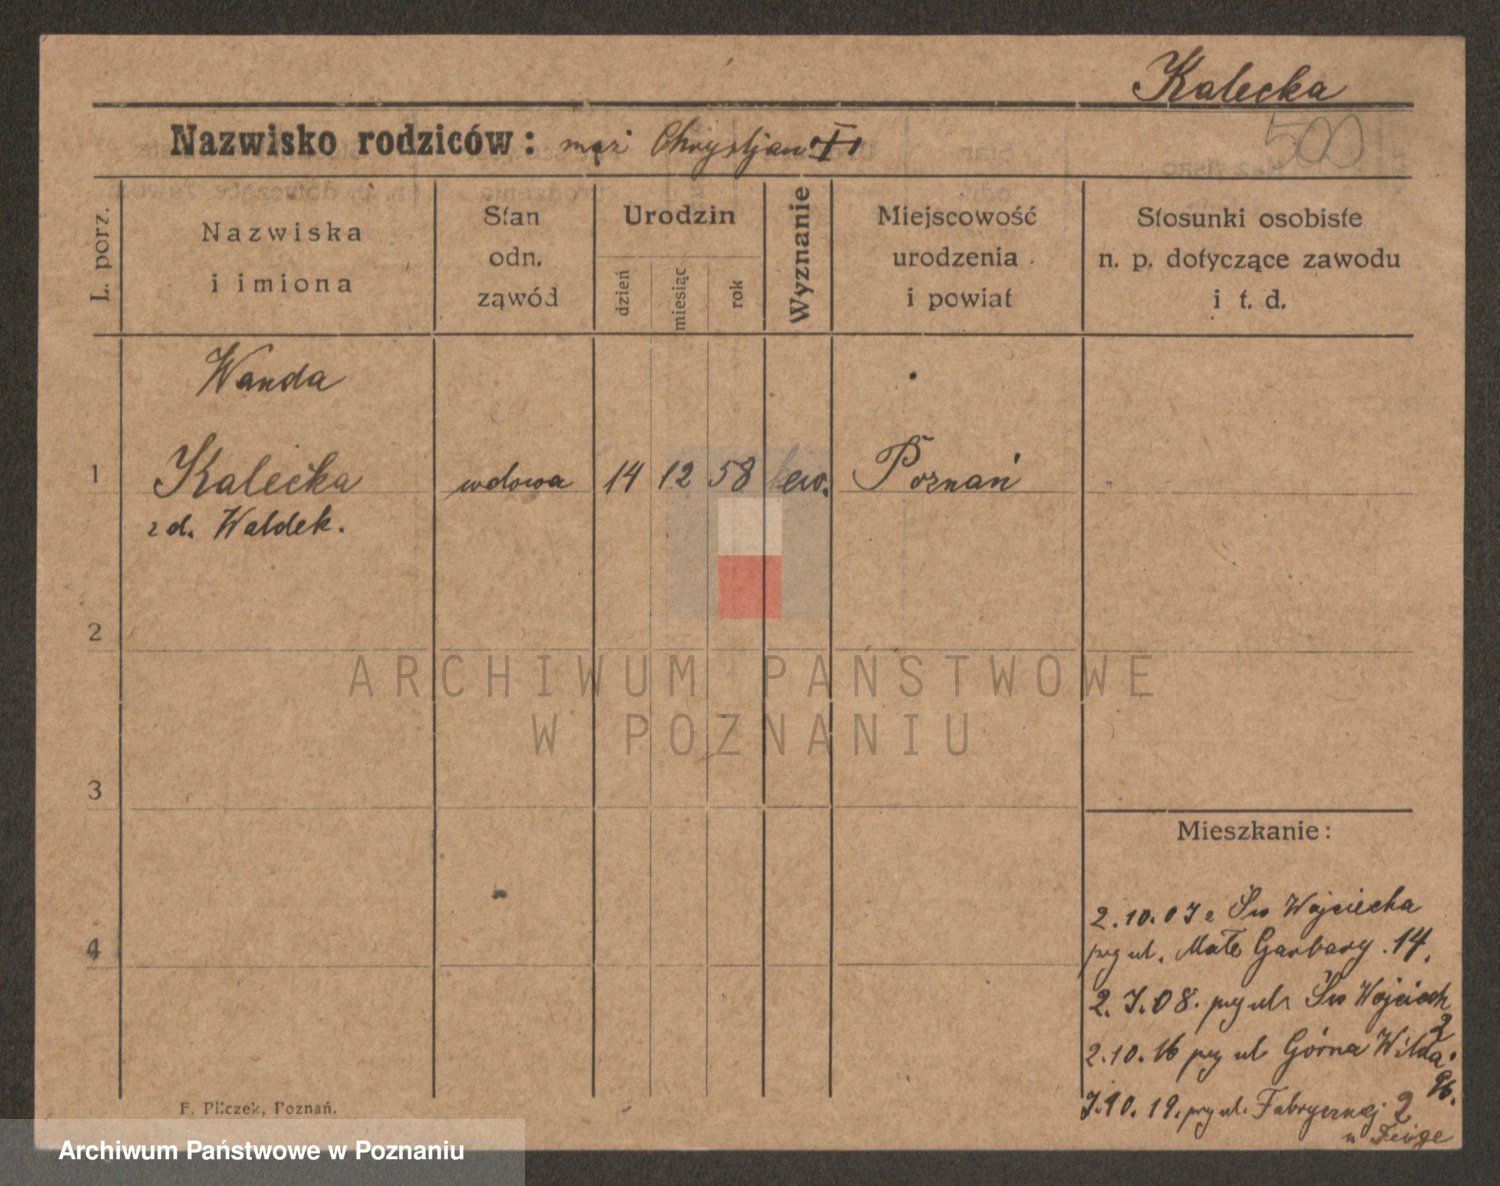 Kalecka
500
Nazwisko rodziców: mąż Chrystjan
L. porz.
Nazwiska
i imiona
Stan
odn.
ząwód
Urodzin
dzień
miesiąc
rok
Wyznanie
Miejscowość
urodzenia
i powiat
Stosunki osobiste
n. p. dotyczące zawodu
i t. d.
Wanda
1 Kalecka wdowa 14 12 58 ew. Poznań
z d. Waldek.
2
ARCHIWUM PAŃSTWOWE
W POZNANIU
3
Mieszkanie:
4
2.10.07 z Św Wojciecha
przy ul. Małe Garbary 14.
2.7.08. przy ul. Św Wojciech
2
2.10.16 przy ul Górna Wilda
96.
10.19. przy ul. Fabrycznej 2
u
F. Pilczek, Poznań.
Archiwum Państwowe w Poznaniu